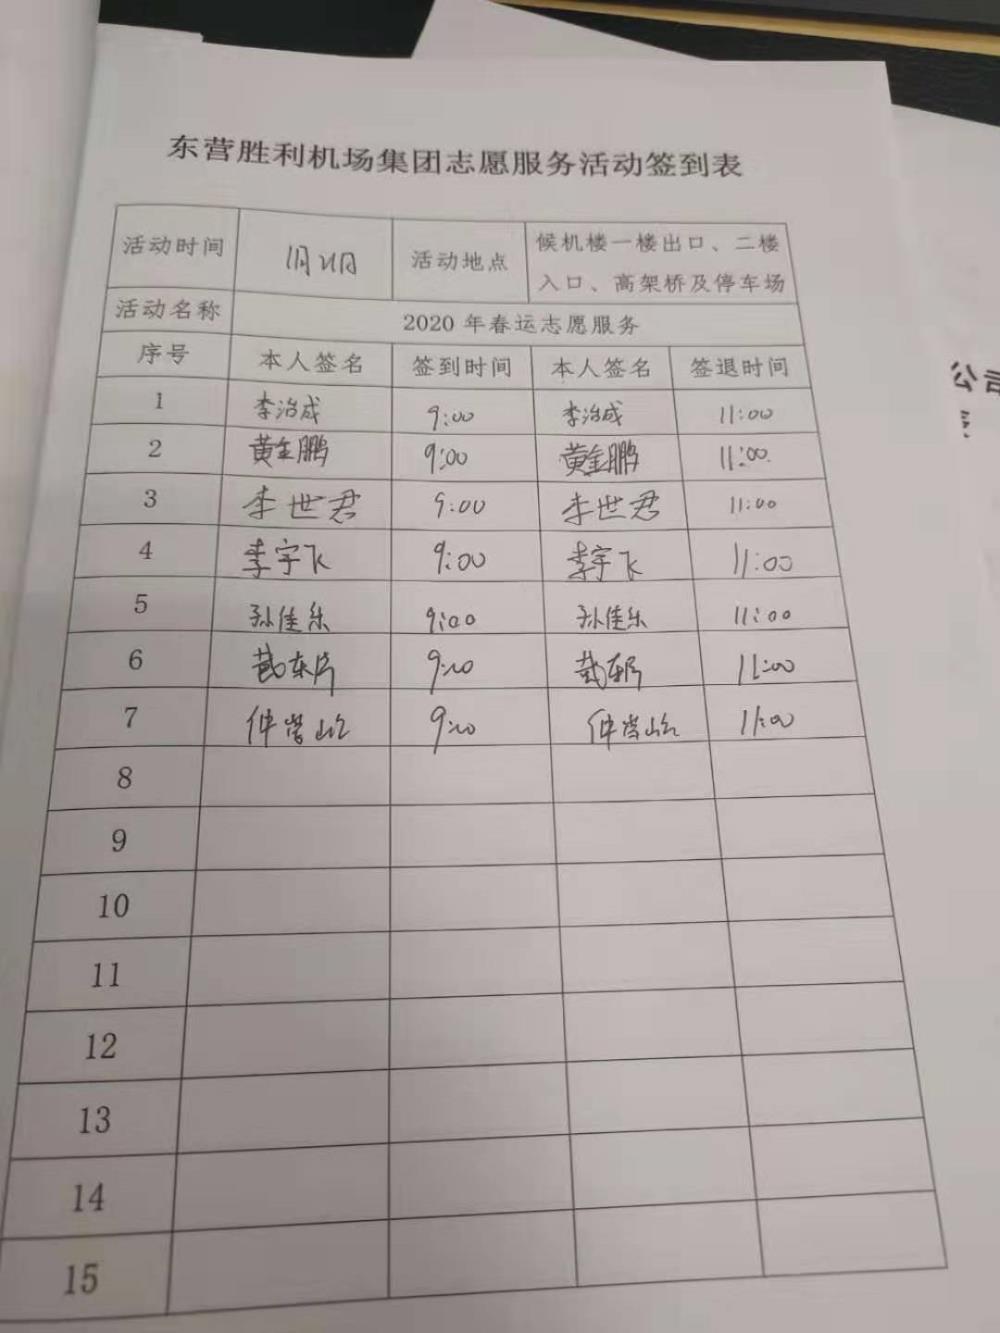 东营胜利机场集团志愿服务活动签到表
活动时间 1月21日 活动地点 候机楼一楼出口、二楼
入口、高架桥及停车场
活动名称 2020年春运志愿服务
序号 本人签名 签到时间 本人签名 签退时间
1 李治成 9:00 李治成 11:00
2 黄金鹏 9:00 黄金鹏 11:00
3 李世君 9:00 李世君 11:00
4 李宇飞 9:00 李宇飞 11:00
5 孙佳乐 9:00 孙佳乐 11:00
6 9:00 11:00
7 9:00 11:00
8
9
10
11
12
13
14
15
公司